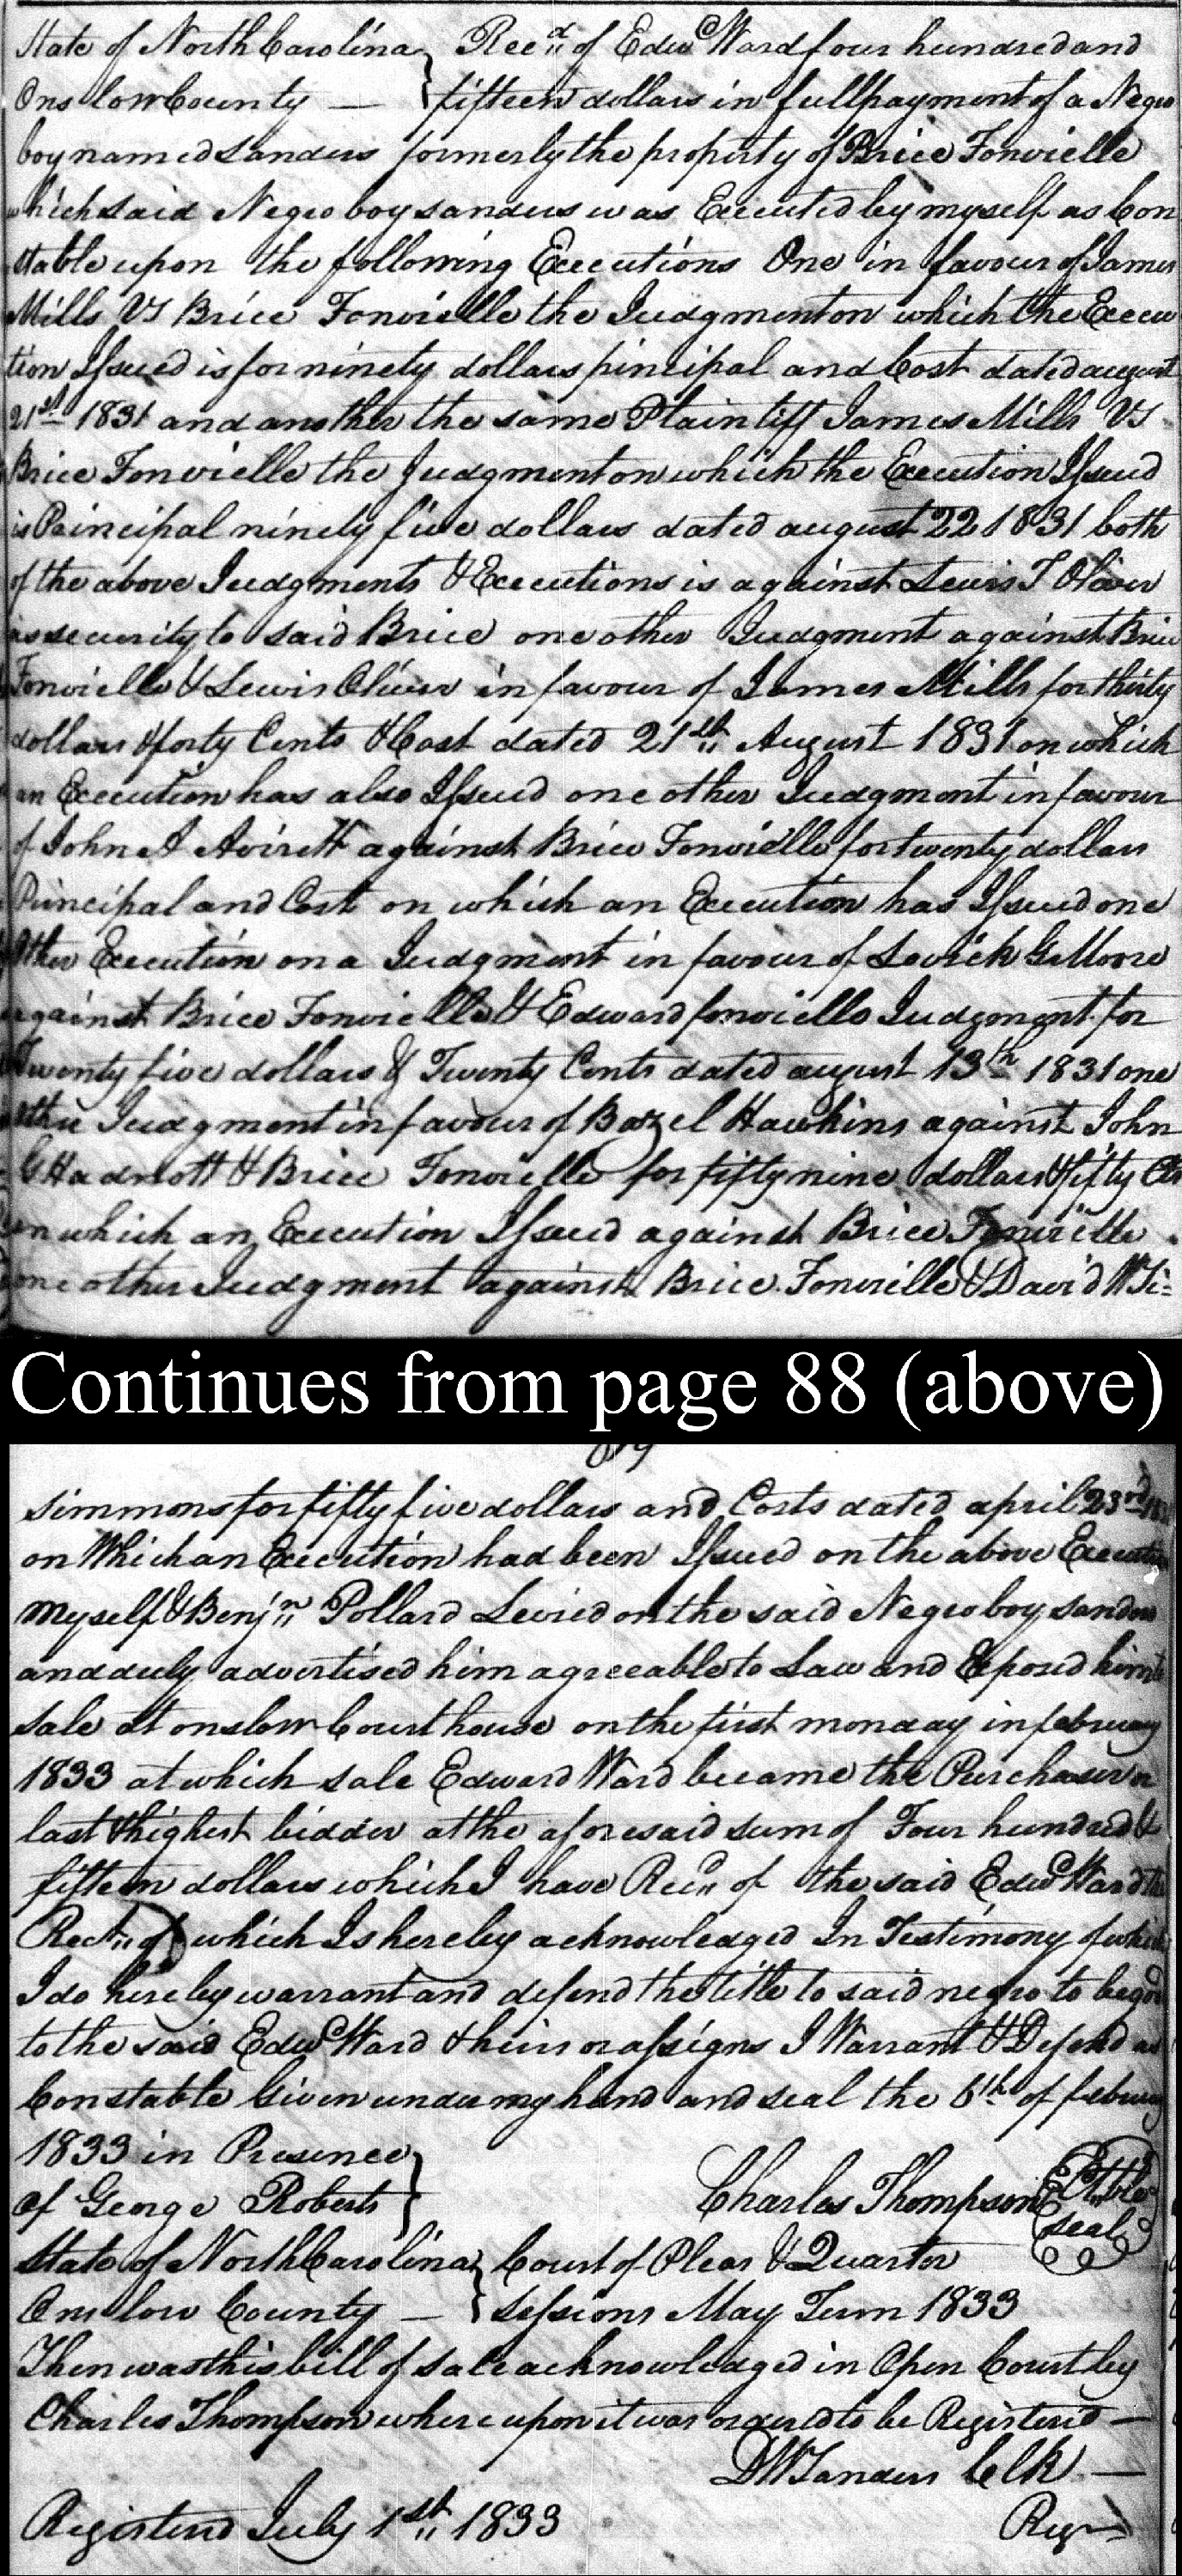 State of North Carolina } Recd of Edwd Ward four hundred and
Onslow County — } fifteen dollars in full payment of a Negro
boy named Sanders formerly the property of Brice Fonvielle
which said Negro boy sanders was Executed by myself as Con
stable upon the following Executions One in favour of James
Mills VS Brice Fonvielle the Judgment on which the Execu
tion Issued is for ninety dollars pincipal and Cost dated august
21st 1831 and another the same Plaintiff James Mills VS
Brice Fonvielle the Judgment on which the Execution Issued
is Principal ninety five dollars dated august 22 1831 both
of the above Judgments & Executions is against Lewis T Oliver
as security to said Brice one other Judgment against Brice
Fonvielle & Lewis Oliver in favour of James Mills for thirty
dollars & forty Cents & Cost dated 21st August 1831 on which
an Execution has also Issued one other Judgment in favour
of John A Avirett against Brice Fonvielle for twenty dollars
Principal and Cost on which an Execution has Issued one
Other Execution on a Judgment in favour of Lovick G Moore
against Brice Fonvielle & Edward fonvielle Judgment for
Twenty five dollars & Twenty Cents dated august 13th 1831 one
other Judgment in favour of Bazel Hawkins against John
G Hadnott & Brice Fonvielle for fifty nine dollars & fifty Cts
on which an Execution Issued against Brice Fonvielle
one other Judgment against Brice Fonvielle & David W Si=
Continues from page 88 (above)
89
simmons for fifty five dollars and Costs dated april 23rd
on Which an Execution had been Issued on the above Execution
Myself & Benjn Pollard Levied on the said Negro boy sanders
and duly advertised him agreeable to Law and Exposed him to
sale at onslow Court house on the first monday in february
1833 at which sale Edward Ward became the Purchaser or
last & highest bidder at the aforesaid sum of Four hundred &
fifteen dollars which I have Recd of the said Edwd Ward the
Rect of which Is hereby acknowledged In Testimony of which
I do hereby warrant and defend the title to said negro to be good
to the said Edwd Ward & heirs or assigns I Warrant & Defend as
Constable Given under my hand and seal the 6th of februay
1833 in Presence }
of George Roberts } Charles Thompson Cstble seal
State of North Carolina } Court of Pleas & Quarter
Onslow County — } Sessions May Term 1833
Then was this bill of sale acknowledged in Open Court by
Charles Thompson where upon it was ordered to be Registered —
DW Sanders Clk —
Registered July 1st 1833 Regr